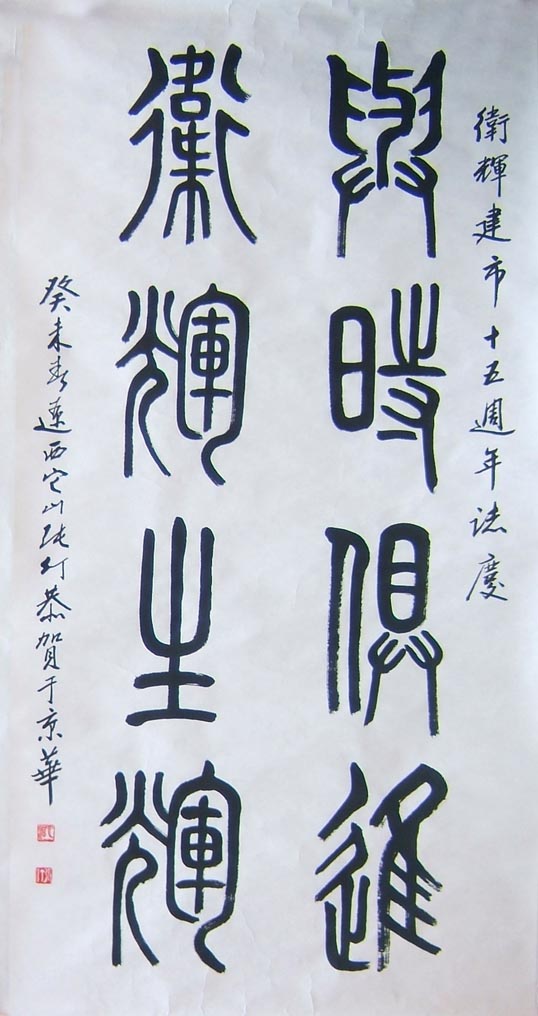 衛輝建市十五週年誌慶
與時俱進
衛輝生輝
癸未春遼西 山張 恭賀于京華